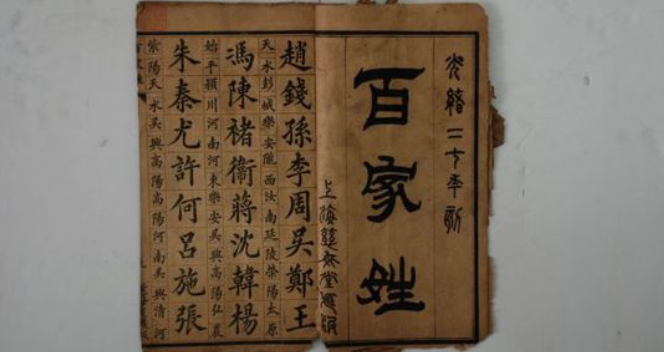 光緒二年
百家姓
上海堂
趙錢孫李周吳鄭王
天水彭城樂安隴西汝南延陵滎陽太原
馮陳褚衞蔣沈韓楊
始平潁川河南河東樂安吳興陽弘農
朱秦尤許何呂施張
紫陽天水吳興高陽陽河南吳興清河